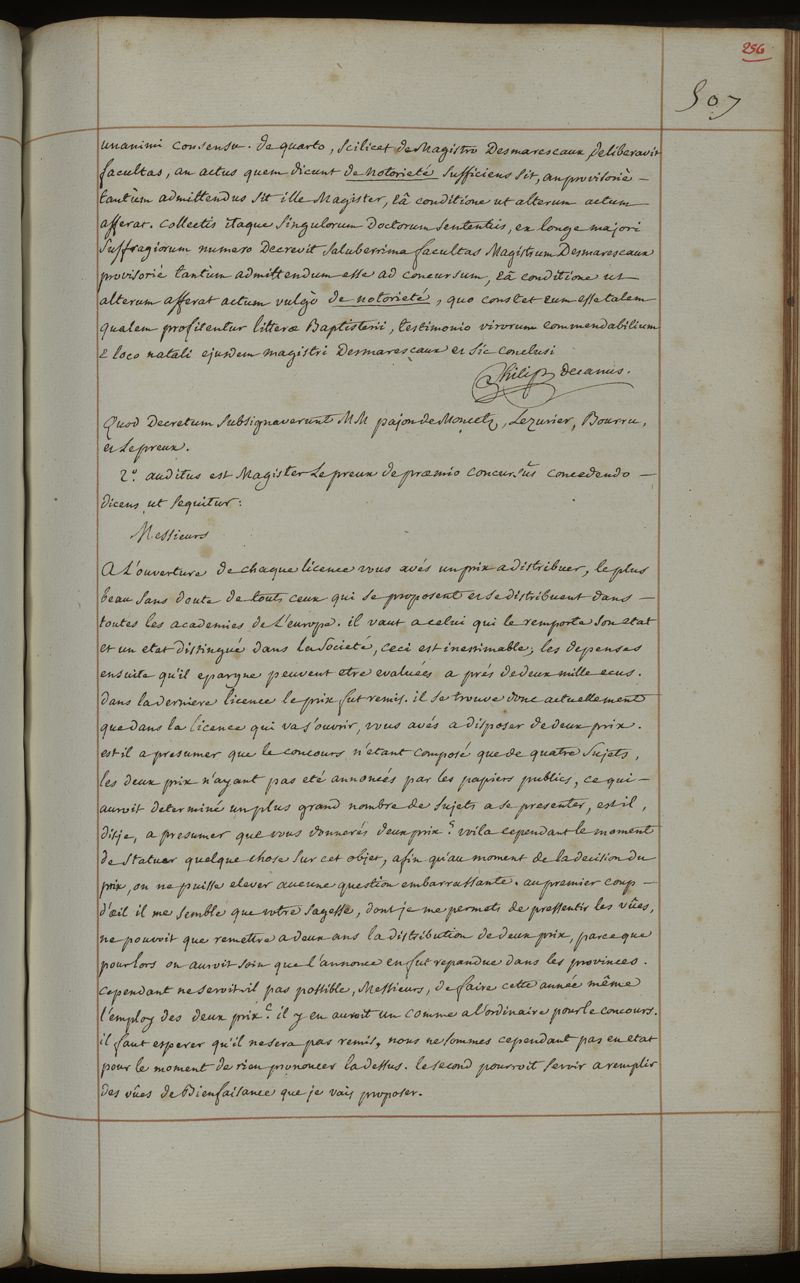 256
507
unanimi consensu. de quarto, scilicet de Magistro Desmarescaux deliberavit
facultas, an actus quem dicunt de notorieté sufficiens sit, an provisoriè –
tantùm admittendus sit ille Magister, eâ conditione ut alterum actum
afferat. Collectis itaque singulorum Doctorum sententiis, ex longe majori
suffragiorum numero Decrevit saluberrima facultas Magistrum Desmarescaux
provisoriè tantum admittendum esse ad concursum, eâ conditione ut –
alterum afferat actum vulgò de notorieté, quo constet eum esse talem
qualem profitentur litteræ Baptisterii, testimonio virorum commendabilium
è loco natali ejusdem magistri Desmarescaux et sic conclusi
Philip decanus.
Quod Decretum subsignaverunt MM pajon de Moncets, Lezurier, Bourru,
et Lepreux.
2º. auditus est Magister Lepreux de præmio concursûs concedendo –
dicens ut sequitur:
Messieurs
A L'ouverture de chaque licence vous avés un prix a distribuer, le plus
beau sans doute de touts ceux qui se proposent et se distribuent dans –
toutes les academies de L'europe. il vaut a celui qui le remporte son etat
et un etat distingué dans la Societé, ceci est inestimable, les depenses
ensuite qu'il epargne peuvent etre evaluées a prés de deux mille ecus.
dans la derniere licence le prix fut remis. il se trouve donc actuellement
que dans la licence qui va s'ouvrir, vous avés a disposer de deux prix.
est il a presumer que le concours n'etant composé que de quatre sujets,
les deux prix n'ayant pas eté annoncés par les papiers publics, ce qui –
auroit determiné un plus grand nombre de sujets a se presenter, est il,
disje, a presumer que vous donnerés deux prix? voila cependant le moment
de statuer quelque chose sur cet objet, afin qu'au moment de la decision du
prix, on ne puisse elever aucune question embarrassante. au premier coup –
d'œil il me semble que votre sagesse, dont je me permets de pressentir les vûes,
ne pouvoit que remettre a deux ans la distribution de deux prix, parce que
pour lors on auroit soin que l'annonce en fut repandue dans les provinces.
Cependant ne seroit-il pas possible, Messieurs, de faire cette année même
l'employ des deux prix? il y en auroit un comme a l'ordinaire pour le concours.
il faut esperer qu'il ne sera pas remis, nous ne sommes cependant pas en etat
pour le moment de rien prononcer la dessus. le second pourroit servir a remplir
des vûes de Bienfaisance que je vais proposer.